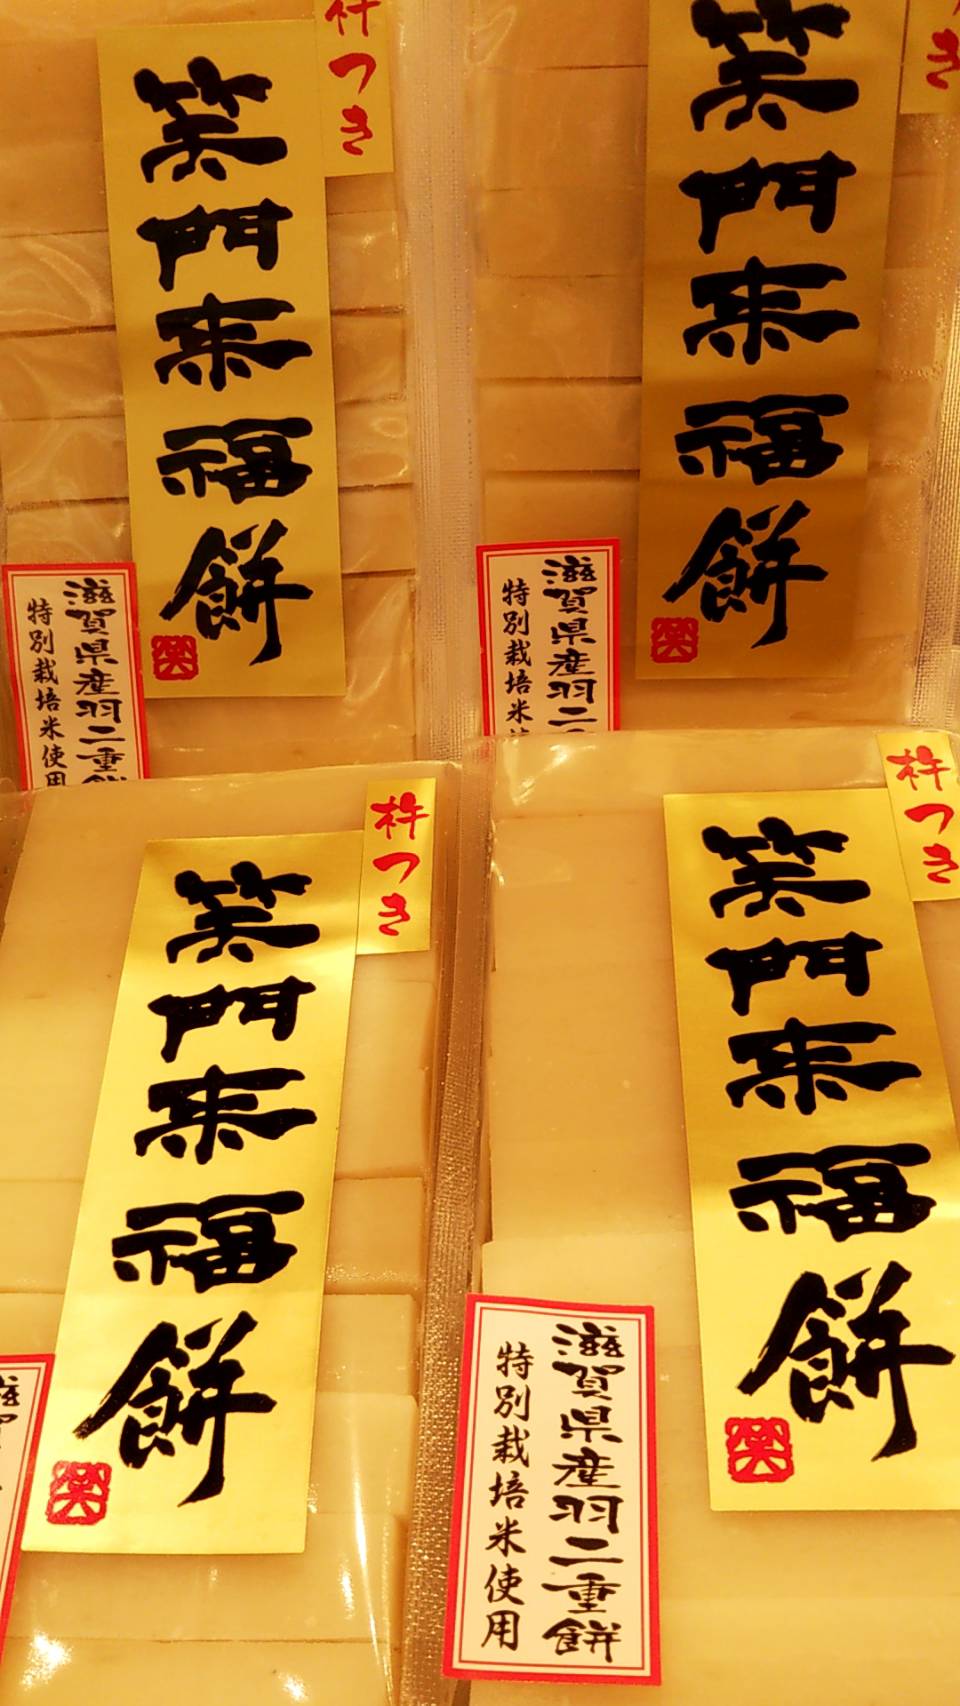 杵つき
笑門来福餅
笑
滋賀県産羽二重餅
特別栽培米使用
つき
笑門来福餅
笑
滋賀県産羽二
特別栽培米
杵つき
笑門来福餅
笑
杵つき
笑門来福餅
笑
滋賀県産羽二重餅
特別栽培米使用
滋賀